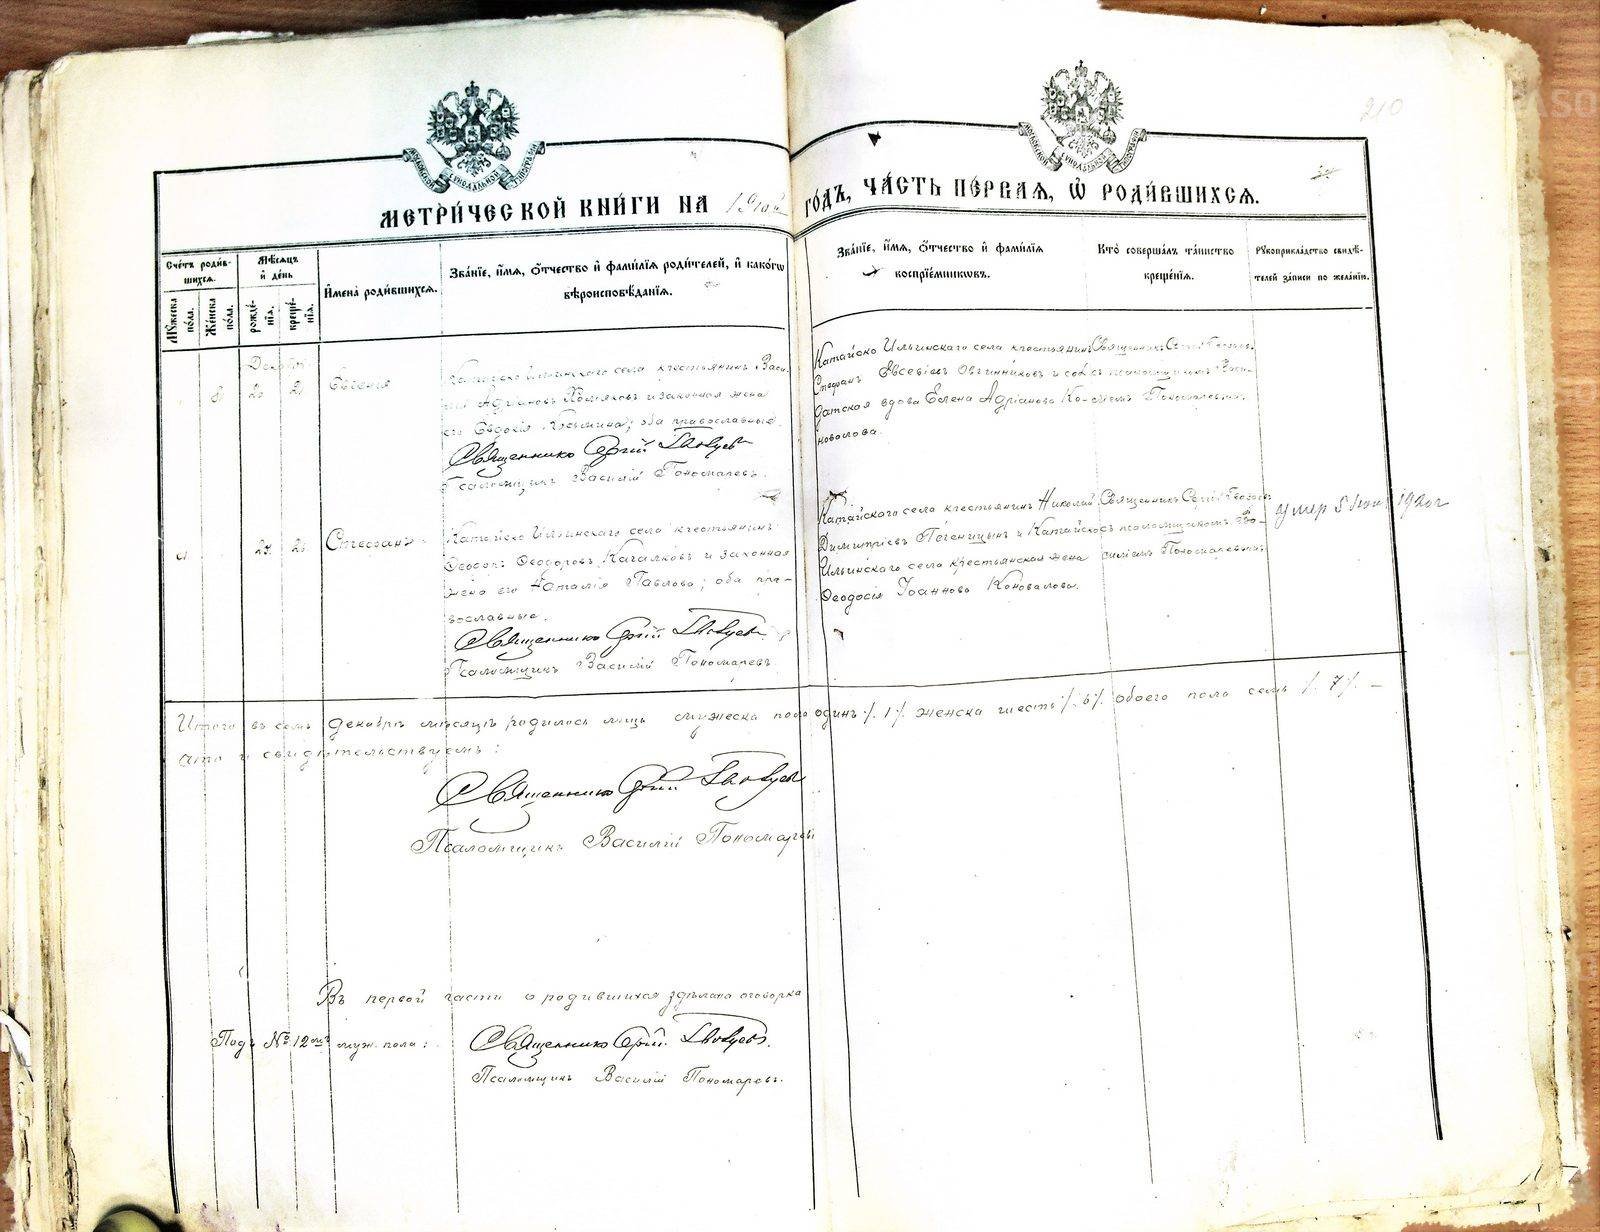 210
МОСКОВСКОЙ СѴНОДАЛЬНОЙ ТИПОГРАФІИ
МОСКОВСКОЙ СѴНОДАЛЬНОЙ ТИПОГРАФІИ
МЕТРИ́ЧЕСКОЙ КНИ́ГИ НА
ГО́ДЪ, ЧА́СТЬ ПЕ́РВАѦ, Ѡ РОДИ́ВШИХСѦ.
Сче́тъ роди́в-
шихсѧ.
Мꙋ́жеска по́ла.
Же́нска по́ла.
Мѣ́сѧцъ
и҆ де́нь
рожде́-
нїѧ.
креще́-
нїѧ.
И҆мена̀ роди́вшихсѧ.
Зва́нїе, и҆́мѧ, ѻ҆́тчество и҆ фами́лїѧ роди́телей, и҆ како́гѡ
вѣроисповѣ́данїѧ.
Зва́нїе, и҆́мѧ, ѻ҆́тчество и҆ фами́лїѧ
воспрїе́мниковъ.
Кто̀ соверша́лъ та́инство
креще́нїѧ.
Рꙋкоприкла́дство свидѣ́-
телей за́писи по жела́нїю.
8
Евгенія
Катайско Ильинскаго села крестьянинъ Васи-
лій Адріановъ и законная жена
его Евдокія Козьмина; оба православные.
Священникъ Сергій
Псаломщикъ Василій Пономаревъ.
Катайско Ильинскаго села крестьянинъ
Стефанъ Евсевіевъ Овчинниковъ и сол-
датская вдова Елена Адріанова Ко-
новалова.
Священникъ Сергій
съ псаломщикомъ Васи-
ліемъ Пономаревымъ.
Стефанъ
Катайско Ильинскаго села крестьянинъ
Ѳеодоръ Ѳеодоровъ Качалковъ и законная
жена его Наталія Павлова; оба пра-
вославные.
Священникъ Сергій
Псаломщикъ Василій Пономаревъ.
Катайского села крестьянинъ Николай
Димитріевъ и Катайско
Ильинскаго села крестьянская жена
Ѳеодосія Іоаннова Коновалова.
Священникъ Сергій
съ псаломщикомъ Ва-
силіемъ Пономаревымъ.
умер 5 1920г
Итого въ семъ декабрѣ мѣсяцѣ родилось лицъ мужеска пола одинъ /. 1 /. женска шесть /. 6 /. обоего пола семь /. 7 /. —
что и свидѣтельствуемъ:
Священникъ Сергій
Псаломщикъ Василій Пономаревъ
Въ первой части о родившихся здѣлана оговорка
Подъ № 12 мъ муж. пола:
Священникъ Сергій
Псаломщикъ Василій Пономаревъ.